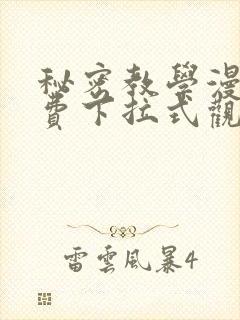 秘密教學漫
費下拉式觀
雷雲風暴4